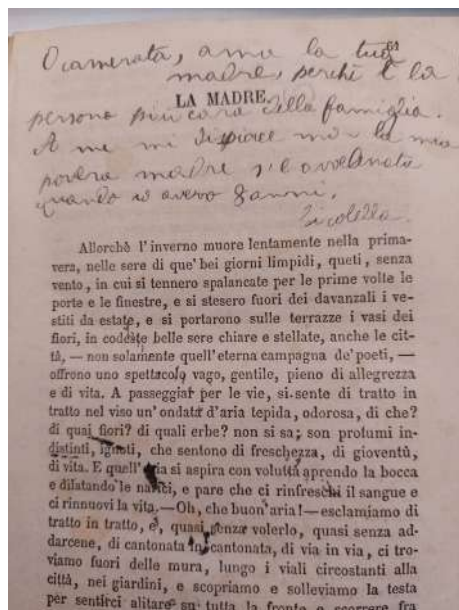 O camerata, ama la tua
61
madre, perchè è la
LA MADRE.
persona più cara della famiglia.
A me mi dispiace ma la mia
povera madre s'è avvelenata
quando io avevo 8 anni.
Allorchè l'inverno muore lentamente nella prima-
vera, nelle sere di que' bei giorni limpidi, queti, senza
vento, in cui si tennero spalancate per le prime volte le
porte e le finestre, e si stesero fuori dei davanzali i ve-
stiti da estate, e si portarono sulle terrazze i vasi dei
fiori, in codeste belle sere chiare e stellate, anche le cit-
tà, — non solamente quell'eterna campagna de' poeti, —
offrono uno spettacolo vago, gentile, pieno di allegrezza
e di vita. A passeggiar per le vie, si sente di tratto in
tratto nel viso un' ondata d'aria tepida, odorosa, di che?
di quai fiori? di quali erbe? non si sa; son profumi in-
distinti, ignoti, che sentono di freschezza, di gioventù,
di vita. E quell'aria si aspira con voluttà aprendo la bocca
e dilatando le narici, e pare che ci rinfreschi il sangue e
ci rinnuovi la vita.—Oh, che buon' aria!—esclamiamo di
tratto in tratto, e, quasi senza volerlo, quasi senza ad-
darcene, di cantonata in cantonata, di via in via, ci tro-
viamo fuori delle mura, lungo i viali circostanti alla
città, nei giardini, e scopriamo e solleviamo la testa
per sentirci alitare su tutta la fronte e scorrere fra